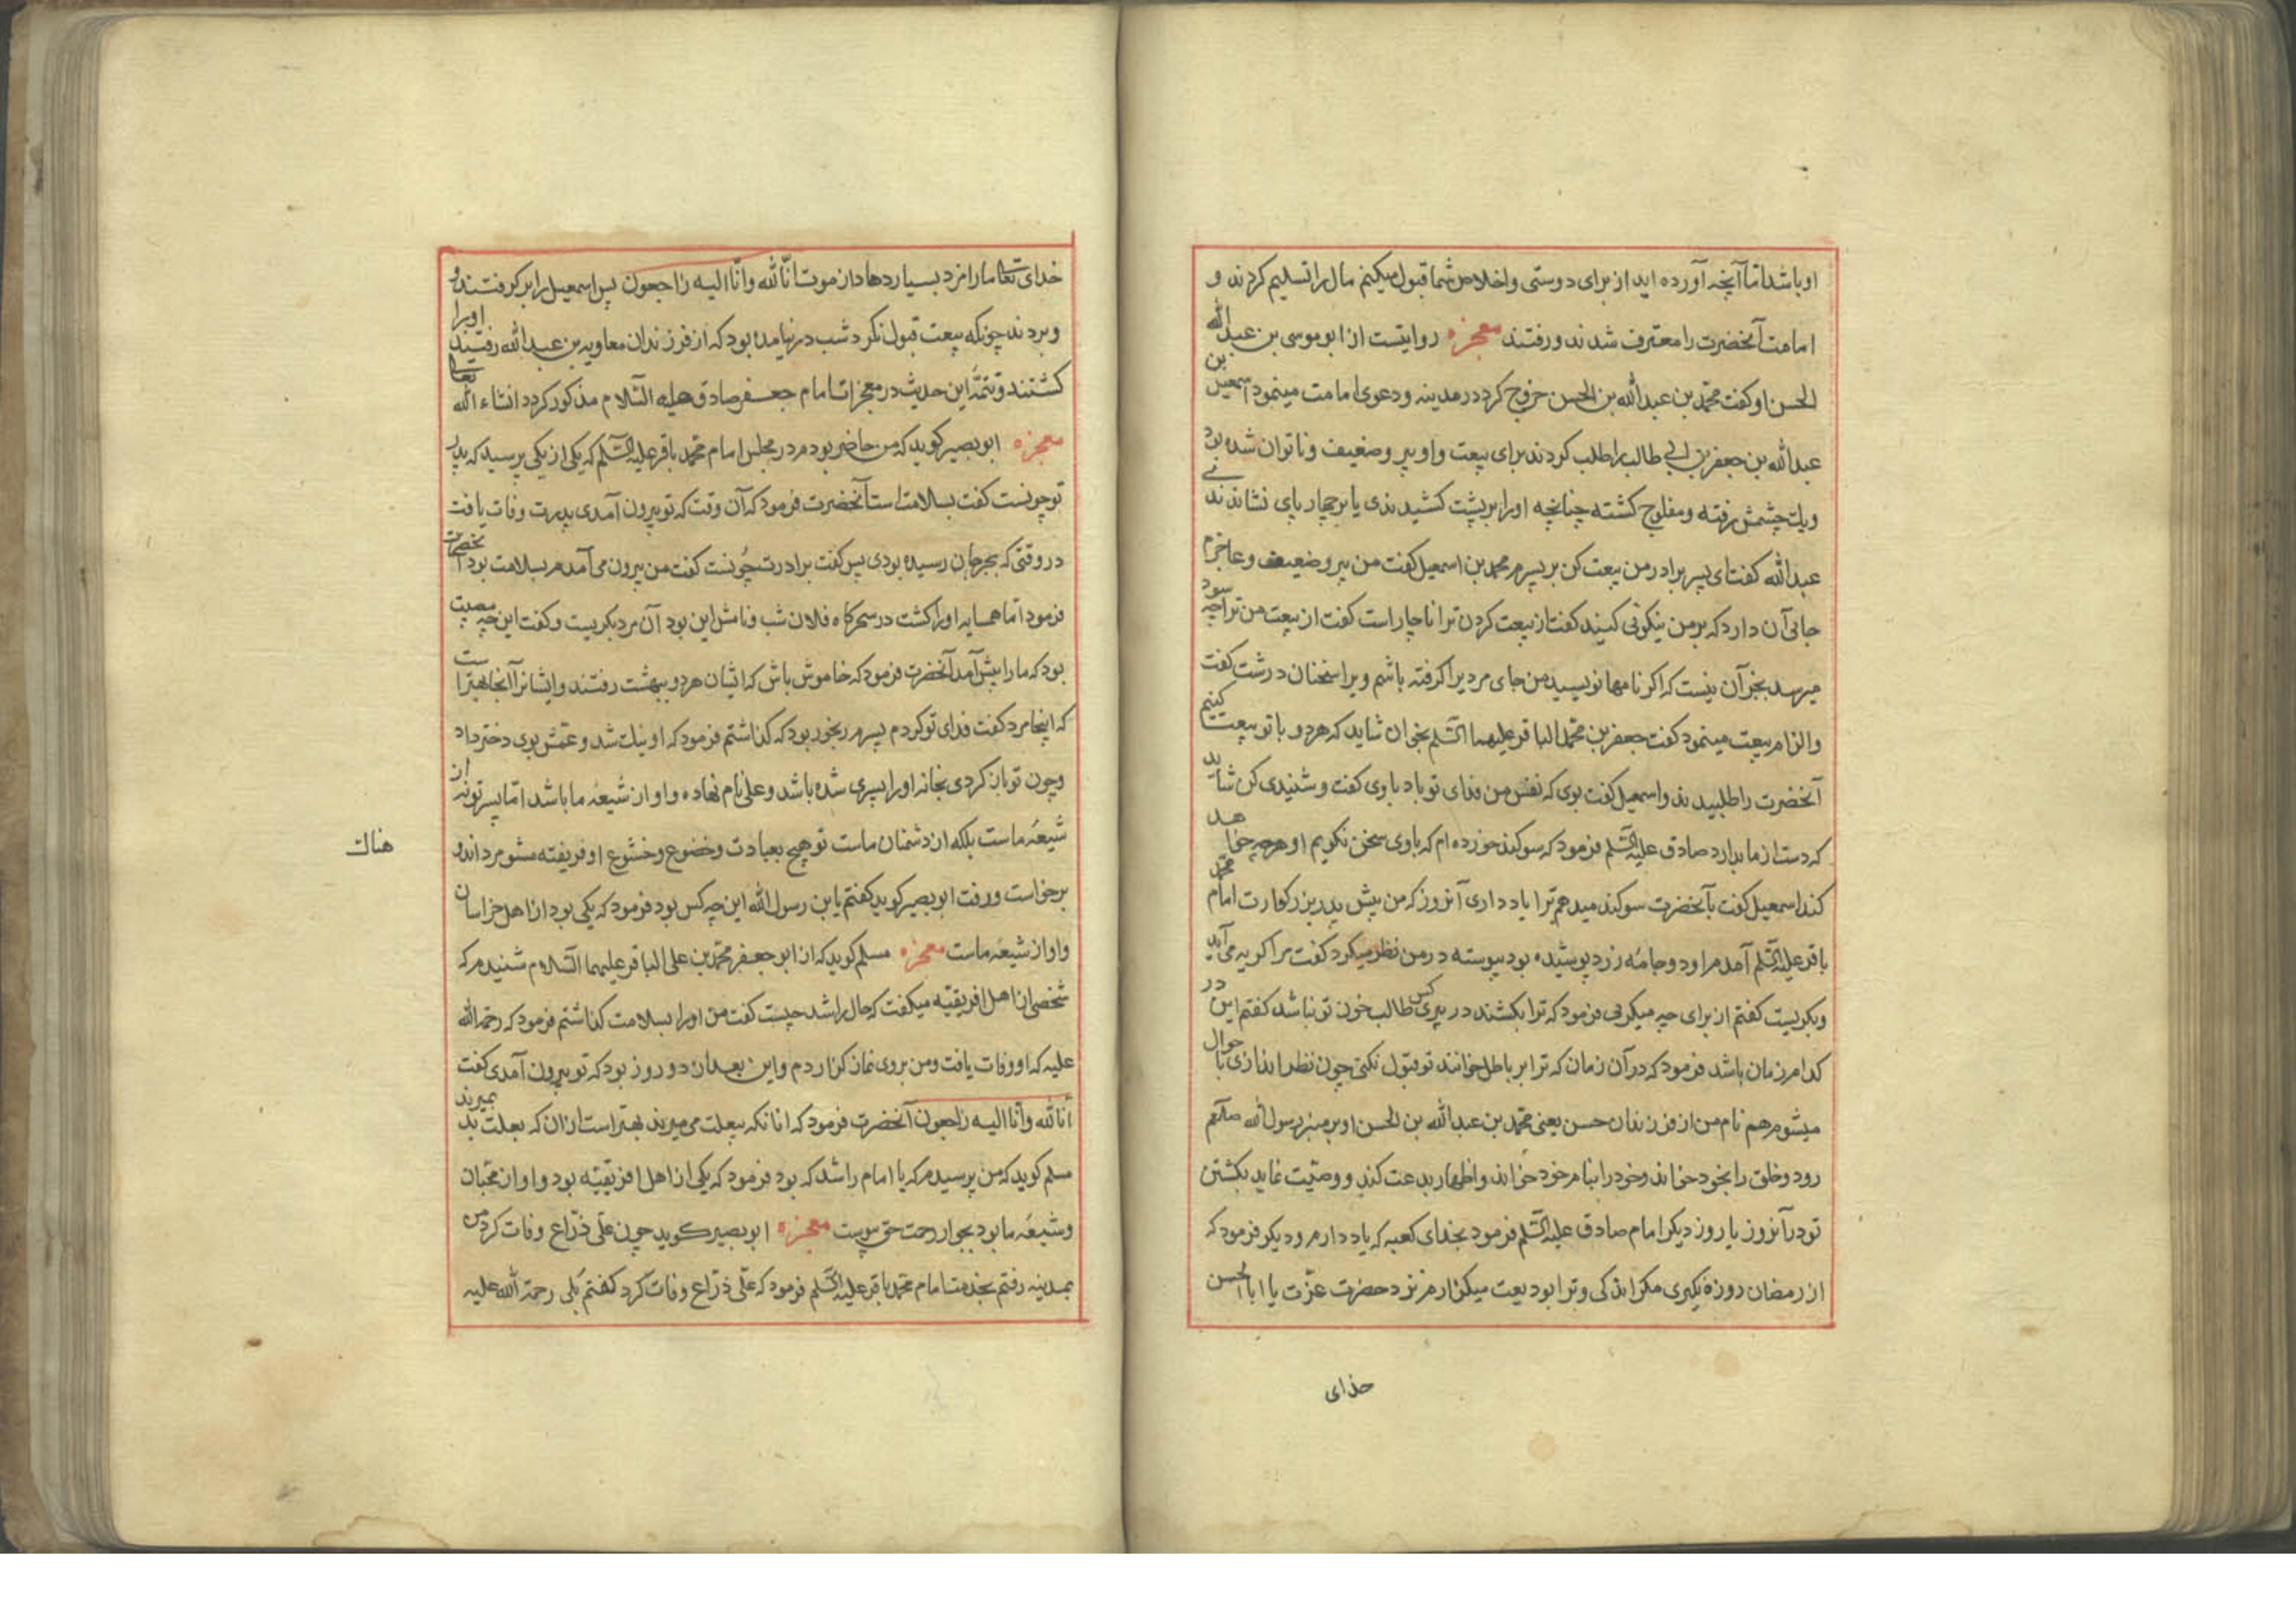 او باشد اما آنچه آورده اید از برای دوستی و اخلاص شما قبول میکنم مال را تسلیم کردند و
امامت آنحضرت را معترف شدند و رفتند معجزه روایتست از ابو موسی بن عبد الله
الحسن او کفت محمد بن عبدالله بن الحسن خروج کرد در مدینه و دعوی امامت مینمود اسمعیل بن
عبدالله بن جعفر بن ابی طالب را طلب کردند برای بیعت و او پیر و ضعیف و ناتوان شده بود
و یک چشمش رفته و مفلوج کشته چنانچه او را بر پشت کشیدندی یا بر چهار پای نشاندندی
عبدالله کفت ای پسر برادر من بیعت کن بر پسرم محمد بن اسمعیل کفت من پیر و ضعیف و عاجزم
جائی آن دارد که بر من نیکوئی کنیند کفت از بیعت کردن ترا ناچار است کفت از بیعت من ترا چه سود
میرسد بجز آن نیست که اکر نامها نویسید من جای مردیرا کرفته باشم ویرا سخنان درشت کفت
و الزام بیعت مینمود کفت جعفر بن محمد الباقر علیهما السلم بخوان شاید که هر دو با تو بیعت کنیم
آنحضرت را طلبیدند و اسمعیل کفت بوی که نفس من فدای تو باد با وی کفت و شنیدی کن شاید
که دست از ما بدارد صادق علیه السلم فرمود که سوکند خورده ام که با وی سخن نکویم او هر چه خواهد
کند اسمعیل کفت بآنحضرت سوکند میدهم ترا یاد داری آنروز که من پیش پدر بزرکوارت امام محمد
باقر علیه السلم آمدم او دو جامه زرد پوشیده بود پیوسته در من نظر میکرد کفت مرا کریه می آید
و بکریست کفتم از برای چه میکرئی فرمود که ترا بکشند در پیری کس طالب خون تو نباشد کفتم این در
کدام زمان باشد فرمود که در آن زمان که ترا بر باطل خوانند تو قبول نکنی چون نظر اندازی با حوال
میشوم هم نام من از فرزندان حسن یعنی محمد بن عبدالله بن الحسن او بر منبر رسول الله صلعم
رود و خلق را بخود خواند و خود را بنام خود خواند و اظهار بدعت کند و وصیت نماید بکشتن
تو در آنروز یا روز دیکر امام صادق علیه السلم فرمود بخدای کعبه که یاد دارم و دیکر فرمود که
از رمضان روزه نکیری مکر اندکی و ترا بودیعت میکذارم نزد حضرت عزت یا ابا الحسن
خدای
خدای تعالی ما را مزد بسیار دهاد از موت انا لله و انا الیه راجعون پس اسمعیل را بر کرفتند و
و بردند چونکه بیعت قبول نکرد شب در نیامده بود که از فرزندان معاویه بن عبدالله رفتند او را
کشتند و تتمه این حدیث در معجزات امام جعفر صادق علیه السلام مذکور کردد انشاء الله تعالی
معجزه ابو بصیر کوید که من حاضر بودم در مجلس امام محمد باقر علیه السلم که یکی از یکی پرسید که پدر
تو چونست کفت بسلامت است آنحضرت فرمود که آن وقت که تو بیرون آمدی پدرت وفات یافت
در وقتی که بجرجان رسیده بودی پس کفت برادرت چونست کفت من بیرون می آمدم بسلامت بود آنحضرت
فرمود اما همسایه او را کشت در سحرکاه فلان شب و نامش این بود آن مرد بکریست و کفت این چه مصیبت
بود که ما را پیش آمد آنحضرت فرمود که خاموش باش که ایشان هر دو ببهشت رفتند و ایشانرا آنجا بهتر است
که اینجا مرد کفت فدای تو کردم پسرم رنجور بود که کذاشتم فرمود که او نیک شد و عمش بوی دختر داد
و چون تو باز کردی بخانه او را پسری شده باشد و علی نام نهاده و او از شیعه ما باشد اما پسر تو نه از
شیعه ماست بلکه از دشمنان ماست تو هیچ بعبادت و خضوع و خشوع او فریفته مشو مرد اندو
هناک
برخواست و رفت ابو بصیر کوید کفتم یا بن رسول الله این چه کس بود فرمود که یکی بود از اهل خراسان
و او از شیعه ماست معجزه مسلم کوید که از ابو جعفر محمد بن علی الباقر علیهما السلام شنیدم که
شخصی از اهل افریقیه میکفت که حال راشد چیست کفت من او را بسلامت کذاشتم فرمود که رحمه الله
علیه که او وفات یافت و من بروی نماز کزاردم و این بعد از دو روز بود که تو بیرون آمدی کفت
انا لله و انا الیه راجعون آنحضرت فرمود که انانکه بیعلت می میرند بهتر است از آن که بعلت بد بمیرند
مسلم کوید که من پرسیدم که یا امام راشد که بود فرمود که یکی از اهل افریقیه بود و او از محبان
و شیعه ما بود بجوار رحمت حق پیوست معجزه ابو بصیر کوید چون علی ذراع وفات کرد من
بمدینه رفتم بخدمت امام محمد باقر علیه السلم فرمود که علی ذراع وفات کرد کفتم بلی رحمة الله علیه